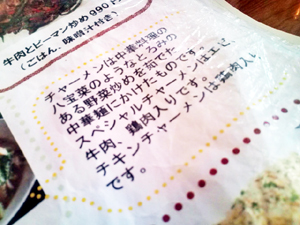 牛肉とピーマン炒め 990円
(ごはん、味噌汁付き)
チャーメンは中華料理の
八宝菜のようなとろみの
ある野菜炒めを茹でた
中華麺にかけたものです。
スペシャルチャーメンはエビ、
牛肉、鶏肉入りです。
チキンチャーメンは鶏肉入り
です。